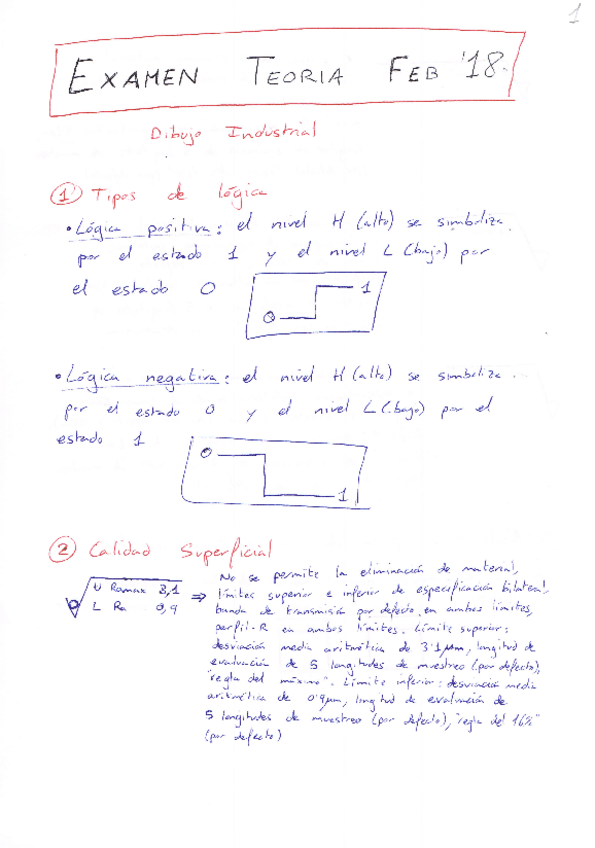 1
EXAMEN TEORIA FEB '18.
Dibujo Industrial
1 Tipos de lógica
• Lógica positiva: el nivel H (alto) se simboliza
por el estado 1 y el nivel L (bajo) por
el estado 0
1
0
• Lógica negativa: el nivel H (alto) se simboliza
por el estado 0 y el nivel L (bajo) por el
estado 1
0
1
2 Calidad Superficial
U Ramax 3,1
L Ra 0,9
⇒ No se permite la eliminación de material,
límites superior e inferior de especificación bilateral,
banda de transmisión por defecto en ambos límites,
perfil-R en ambos límites. Límite superior:
desviación media aritmética de 3'1 μm, longitud de
evaluación de 5 longitudes de muestreo (por defecto),
"regla del máximo". Límite inferior: desviación media
aritmética de 0'9 μm, longitud de evaluación de
5 longitudes de muestreo (por defecto), "regla del 16%"
(por defecto)